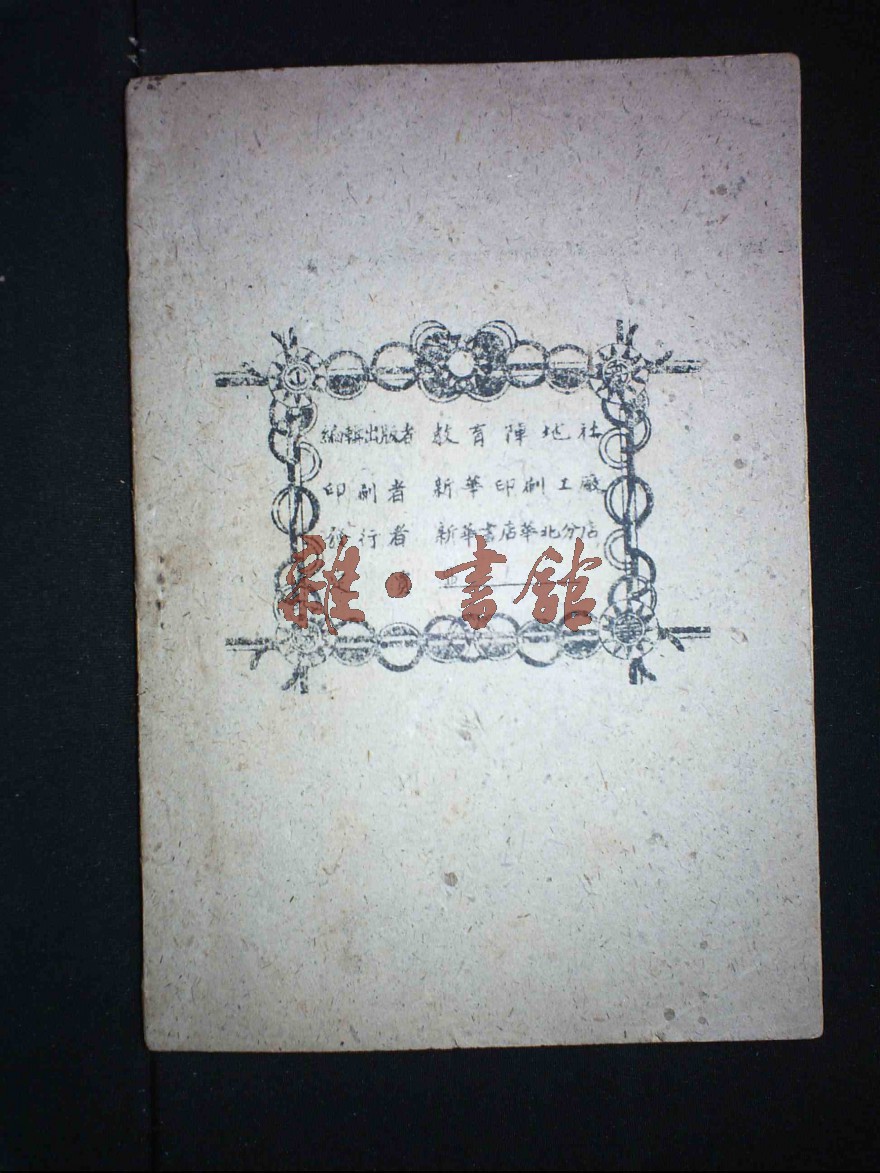 編輯出版者 教育陣地社
印刷者 新華印刷工廠
發行者 新華書店華北分店
雜·書館